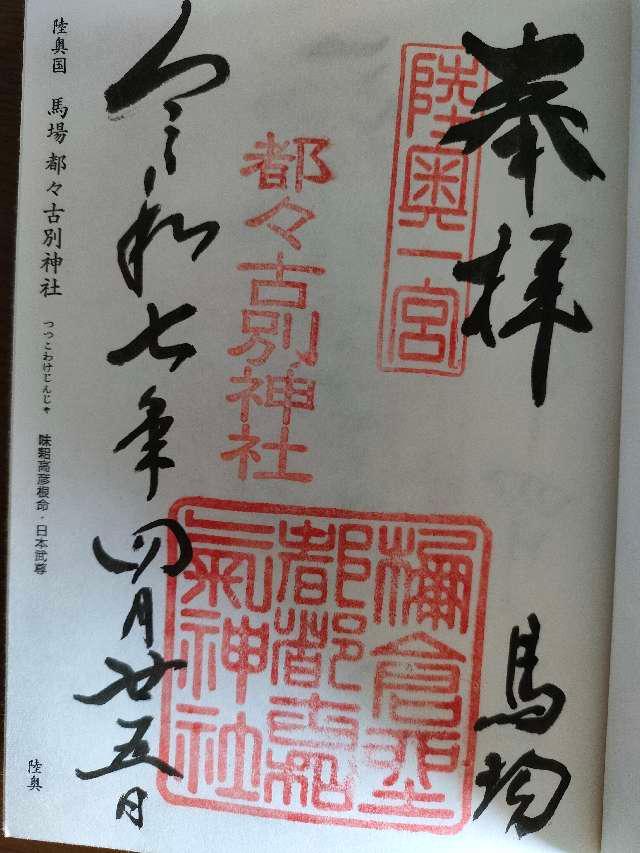 奉拝
馬場
陸奥一宮
都々古別神社
令和七年四月廿五日
陸奥国 馬場 都々古別神社 つつこわけじんじゃ 味耜高彦根命・日本武尊
陸奥